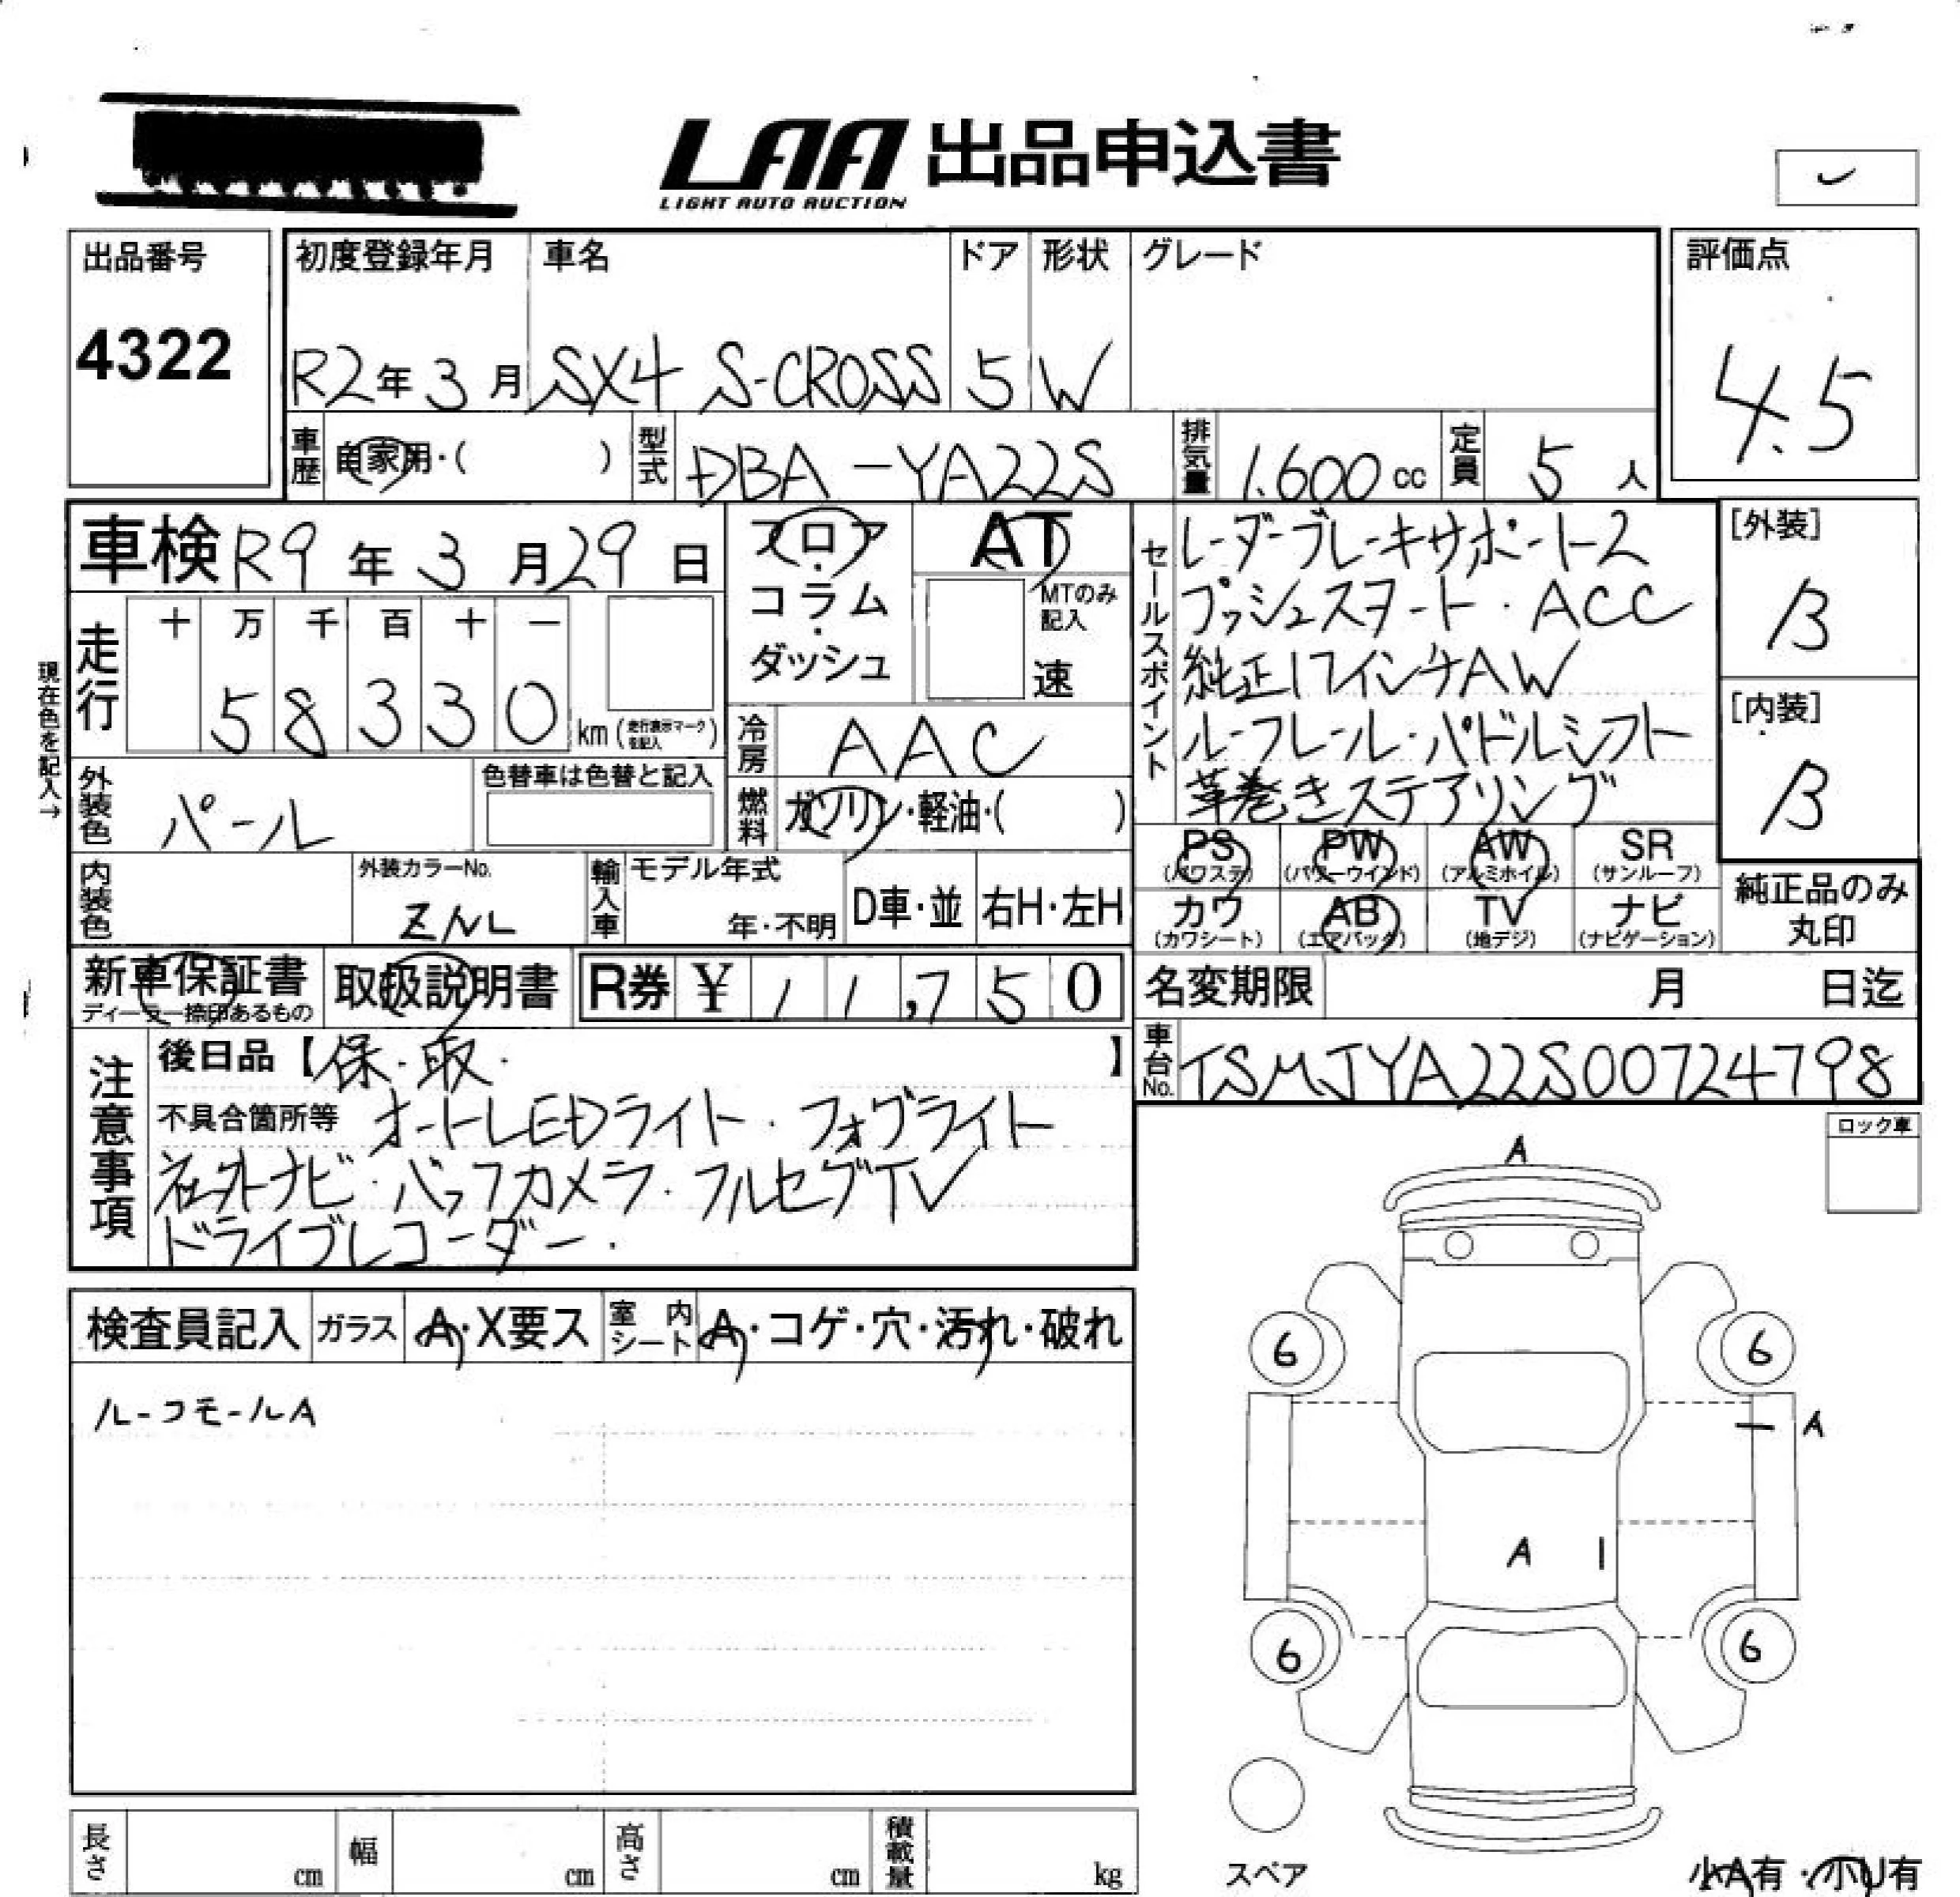 LAA 出品申込書
LIGHT AUTO AUCTION
出品番号
4322
初度登録年月
R2年3月
車名
SX4 S-CROSS
ドア
5
形状
W
グレード
評価点
4.5
車歴 自家用・( )
型式 DBA-YA22S
排気量 1.600 cc
定員 5 人
車検 R9年3月29日
フロア・コラム・ダッシュ
AT
MTのみ記入
速
現在色を記入→
走行
十 万 千 百 十 一
5 8 3 3 0 km (走行表示マークを記入)
冷房 AAC
外装色 パール
色替車は色替と記入
燃料 ガソリン・軽油・( )
内装色
外装カラーNo.
ZNL
輸入車
モデル年式
年・不明
D車・並
右H・左H
セールスポイント
レーダーブレーキサポート2
プッシュスタート・ACC
純正17インチAW
ルーフレール・パドルシフト
革巻きステアリング
[外装]
B
[内装]
B
PS (パワステ) PW (パワーウインド) AW (アルミホイル) SR (サンルーフ)
カワ (カワシート) AB (エアバック) TV (地デジ) ナビ (ナビゲーション)
純正品のみ丸印
新車保証書
ディーラー捺印あるもの
取扱説明書
R券 ¥ 11,750
名変期限 月 日迄
車台No. TSMJYA22S00724798
注意事項
後日品【保・取・ 】
不具合箇所等 オートLEDライト・フォグライト
社外ナビ・バックカメラ・フルセグTV
ドライブレコーダー・
ロック車
検査員記入 ガラス A・X要ス 室内シート A・コゲ・穴・汚れ・破れ
ルーフモールA
A
6 6
A
A
6 6
スペア
小A有・小U有
長さ cm 幅 cm 高さ cm 積載量 kg